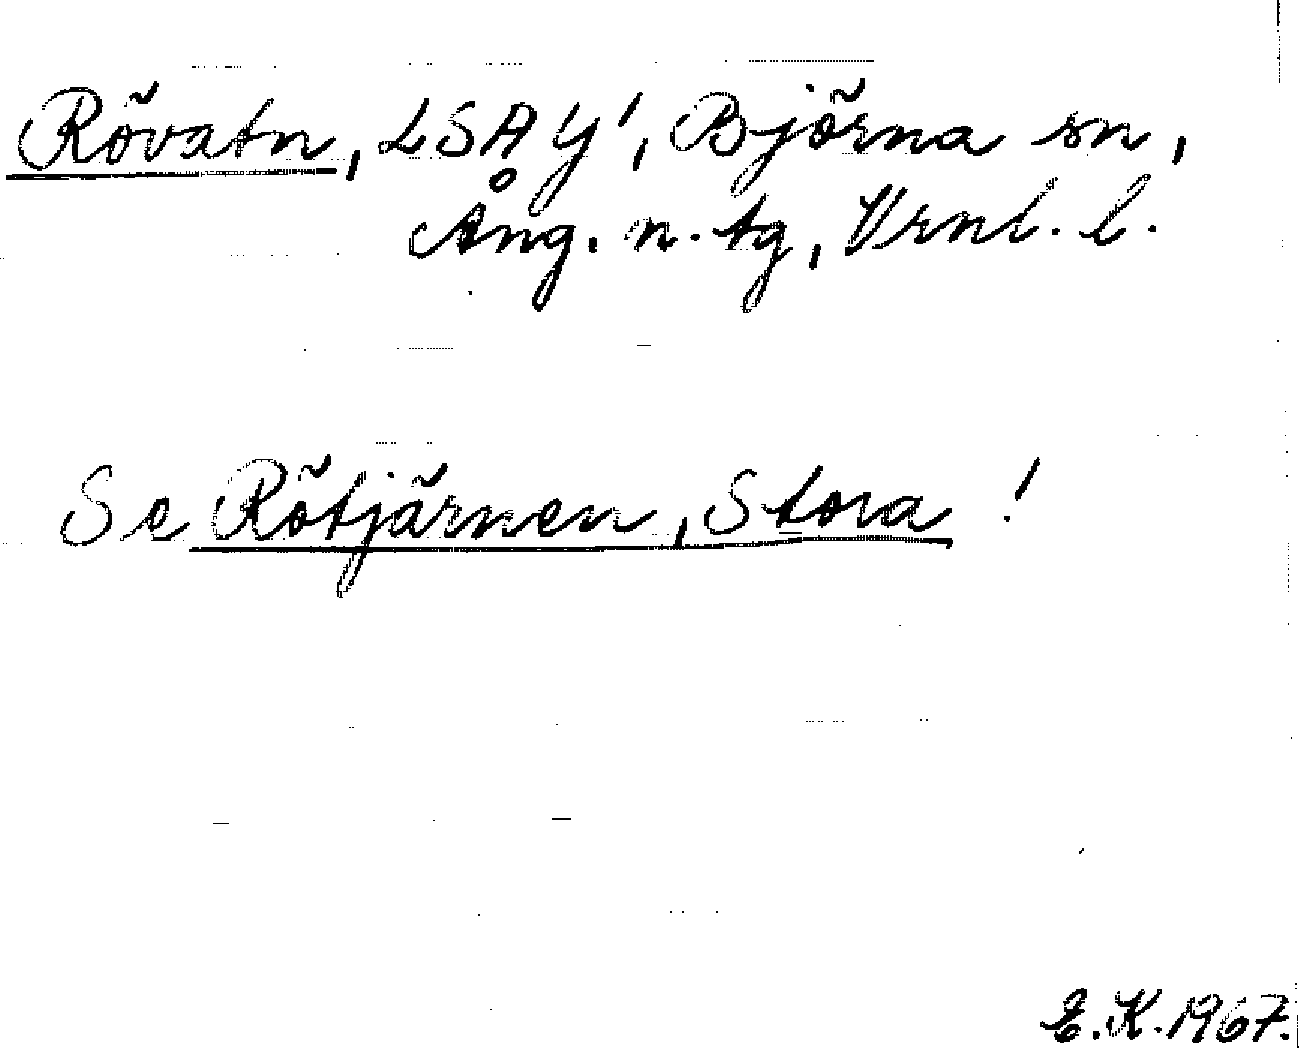 Rövatn, LSA Y', Björna sn,
Ång. n. tg, Vrnl. l.
Se Rötjärnen, Stora !
E.K. 1967.